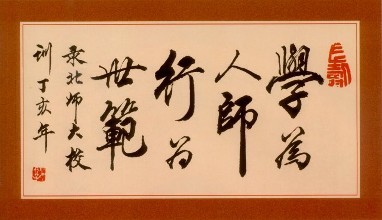 學為
人師
行為
世範
录北师大校
訓丁亥年